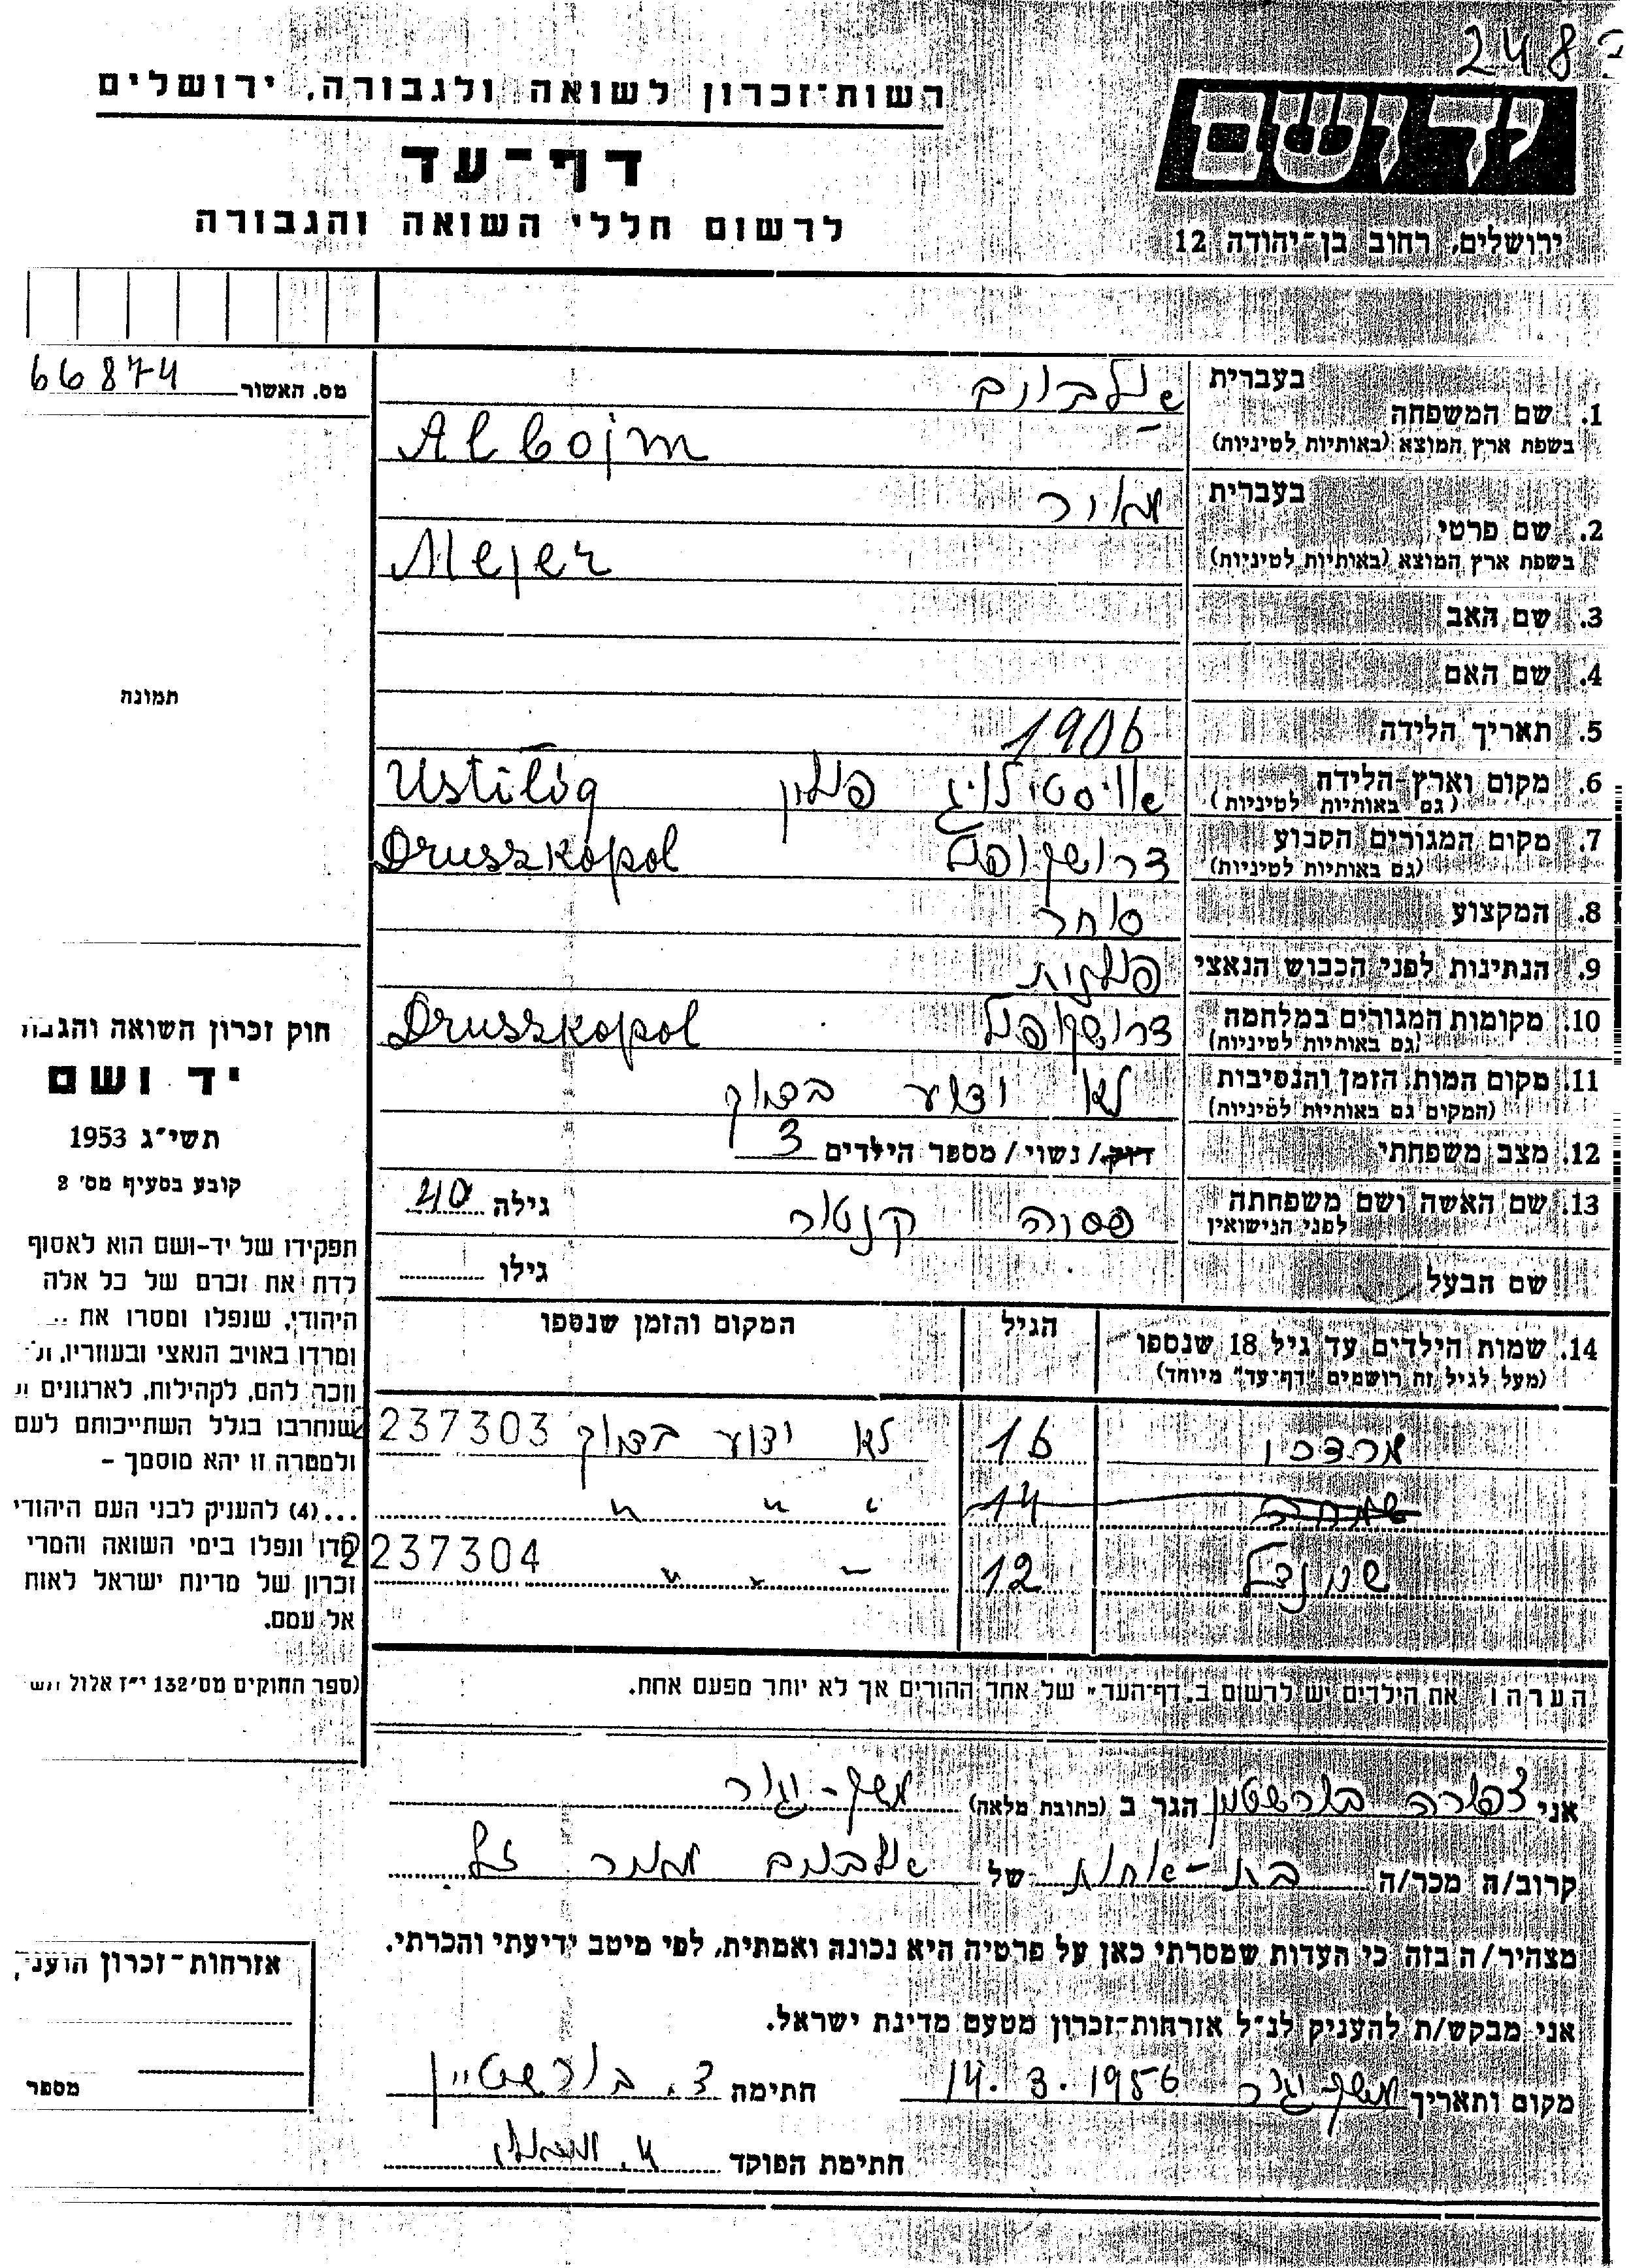 248
רשות־זכרון לשואה ולגבורה, ירושלים
יד ושם
דף־עד
לרשום חללי השואה והגבורה
ירושלים, רחוב בן־יהודה 12
מס. האשור 66874
1. שם המשפחה
בעברית
אלבוים
בשפת ארץ המוצא (באותיות לטיניות)
Albojm
2. שם פרטי
בעברית
מאיר
בשפת ארץ המוצא (באותיות לטיניות)
Mejer
3. שם האב
4. שם האם
תמונה
5. תאריך הלידה 1906
6. מקום וארץ הלידה אויסטילויג פולין Ustilóg
(גם באותיות לטיניות)
7. מקום המגורים הקבוע דרושקופול Druszkopol
(גם באותיות לטיניות)
8. המקצוע סוחר
9. הנתינות לפני הכבוש הנאצי פולנית
10. מקומות המגורים במלחמה דרושקופול Druszkopol
(גם באותיות לטיניות)
11. מקום המות, הזמן והנסיבות לא ידוע בדיוק
(המקום גם באותיות לטיניות)
12. מצב משפחתי רווק/ נשוי/ מספר הילדים 3
13. שם האשה ושם משפחתה פסיה קנטור גילה 40
לפני הנישואין
שם הבעל גילו
14. שמות הילדים עד גיל 18 שנספו הגיל המקום והזמן שנספו
(מעל לגיל זה רושמים "דף־עד" מיוחד)
מרדכי 16 לא ידוע בדיוק 237303
שמחה 14 " " "
שיינדל 12 " " " 237304
הערה: את הילדים יש לרשום ב„דף־העד" של אחד ההורים אך לא יותר מפעם אחת.
חוק זכרון השואה והגבו
יד ושם
תשי"ג 1953
קובע בסעיף מס' 2
תפקידו של יד-ושם הוא לאסוף
לדת את זכרם של כל אלה
היהודי, שנפלו ומסרו את
ומרדו באויב הנאצי ובעוזריו, ול
וזכר להם, לקהילות, לארגונים ו
שנחרבו בגלל השתייכותם לעם
ולמטרה זו יהא מוסמך –
...(4) להעניק לבני העם היהודי
מדו ונפלו בימי השואה והמרי
זכרון של מדינת ישראל לאות
אל עמם.
(ספר החוקים מס' 132 י"ז אלול תש
אני צפורה בורשטין הגר ב (כתובת מלאה) משק-יגור
קרוב/ה מכר/ה בת-אחות של אלבוים מאיר ז"ל
מצהיר/ה בזה כי העדות שמסרתי כאן על פרטיה היא נכונה ואמתית, לפי מיטב ידיעתי והכרתי.
אני מבקש/ת להעניק לנ"ל אזרחות־זכרון מטעם מדינת ישראל.
מקום ותאריך משק-יגור 14.3.1956 חתימה צ. בורשטיין
חתימת הפוקד
אזרחות־זכרון הוענק
מספר